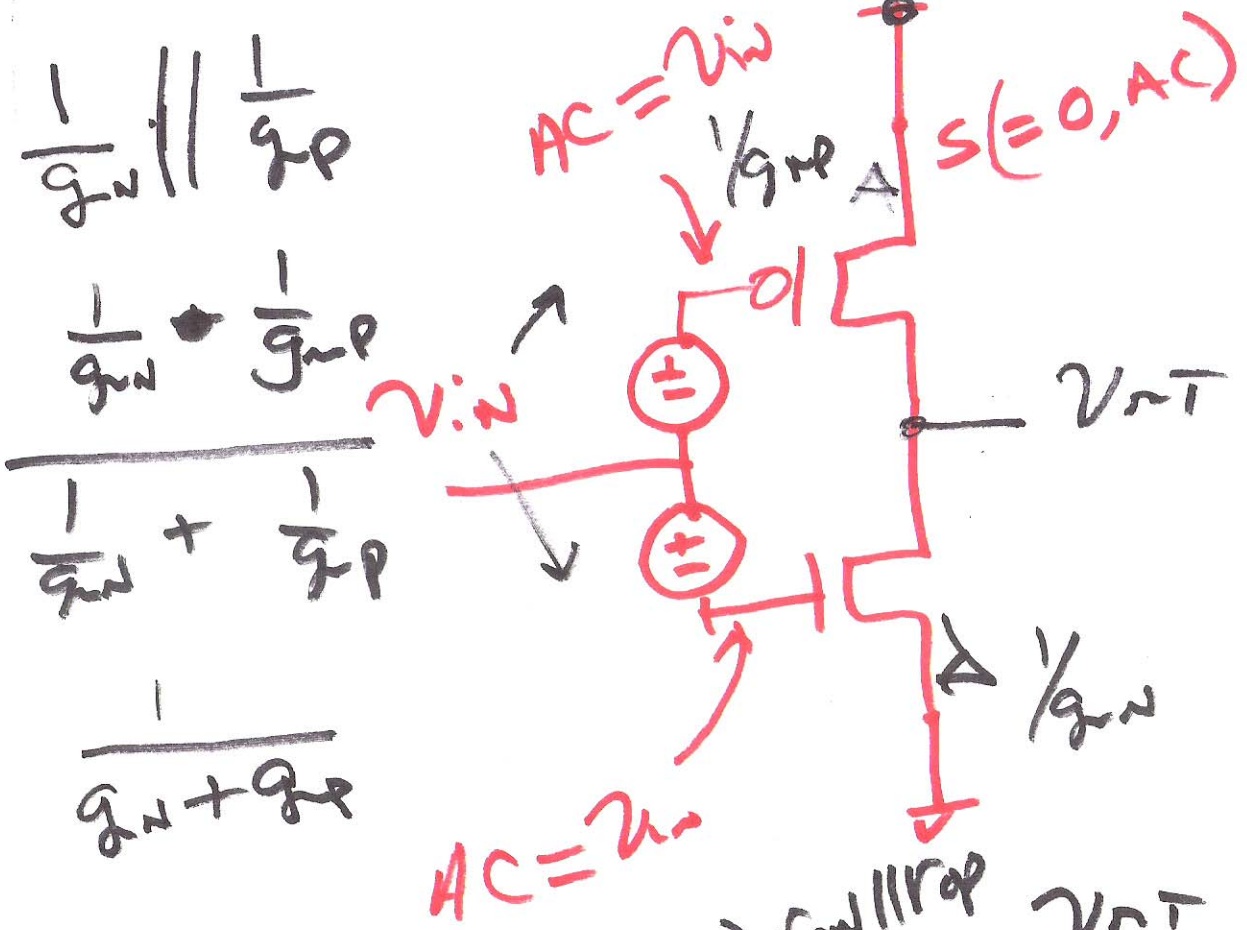 1/gmN || 1/gmP
1/gmN • 1/gmP
1/gmN + 1/gmP
1
gmN + gmP
AC = Vin
1/gmP
S(=0, AC)
Vin
+
=
+
=
VOUT
1/gmN
AC = Vin
||roP
VOUT